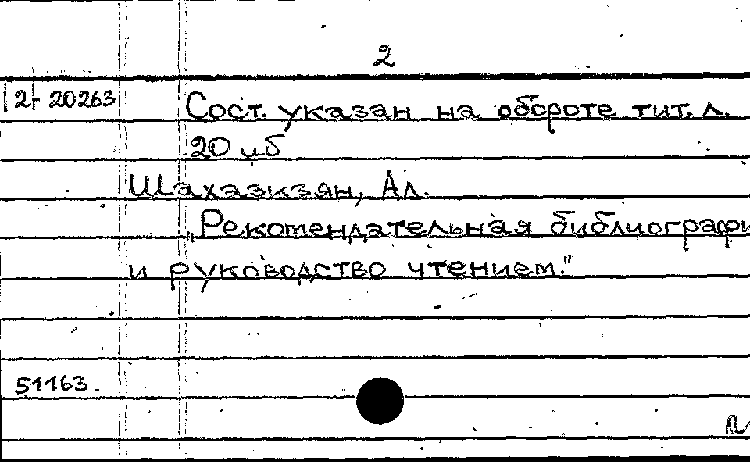 2
2- 20263 Сост. указан на обороте тит. л.
20 цб
Шахазизян, Ал.
„Рекомендательная библиографи
и руководство чтением."
51163.